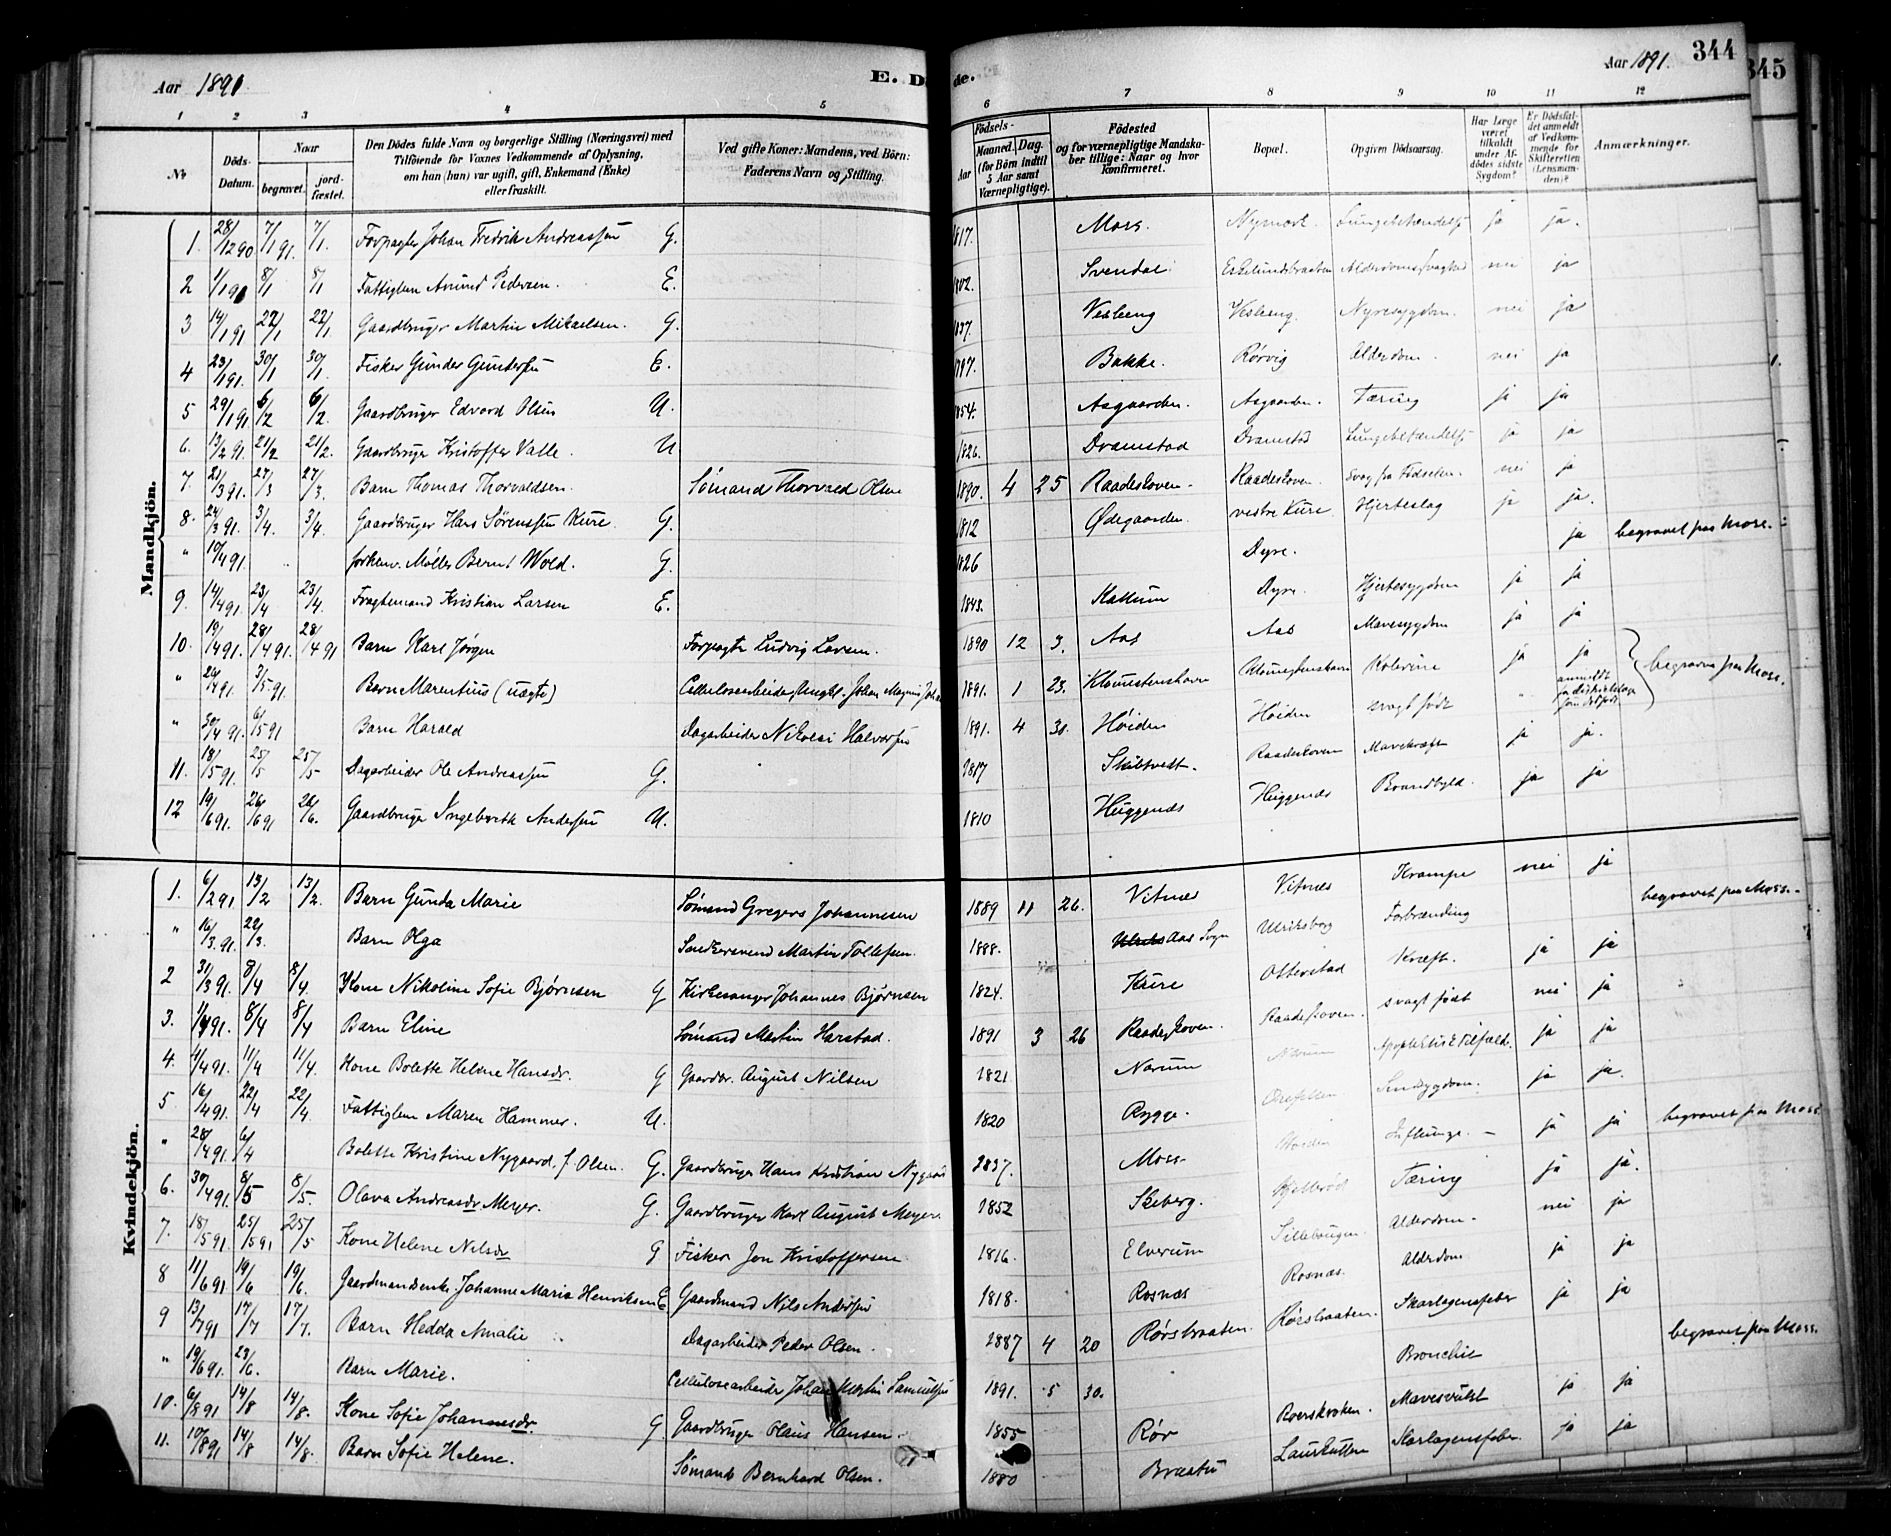 344
345
Aar 1891
E. D
de.
Aar 1891.
1 2 3 4 5 6 7 8 9 10 11 12
No
Döds-Datum.
Naar
begravet.
jord-fæstet.
Den Dödes fulde Navn og borgerlige Stilling (Næringsvei) med Tilföiende for Voxnes Vedkommende af Oplysning, om han (hun) var ugift, gift, Enkemand (Enke) eller fraskilt.
Ved gifte Koner: Mandens, ved Börn: Faderens Navn og Stilling.
Födsels-
Aar
Maaned. Dag.
(for Börn indtil 5 Aar samt Værnepligtige).
Födested og for værnepligtige Mandskaber tillige: Naar og hvor konfirmeret.
Bopæl.
Opgiven Dödsaarsag.
Har Læge været tilkaldt under Afdödes sidste Sygdom?
Er Dödsfaldet anmeldt af Vedkommende for Skifteretten (Lensmanden)?
Anmærkninger.
Mandkjön.
1. 28/12 90 7/1 91. 7/1. Forpagter Johan Fredrik Andreassen G. 1817. Moss. Lungebetændelse ja ja.
2 1/1 91 8/1 8/1 Fattiglem Amund Pedersen. E. Svendal. Eskelundsbraaten Alderdomssvaghed nei ja
3 14/1 91 22/1 22/1 Gaardbruger Martin Mikaelsen. G. 1837. Vesleng Vesleng. Nyresygdom. nei ja
4 23/1 91. 30/1 30/1. Fisker Gunder Gundersen E. Bakke. Rørvig Alderdom. nei ja
5 29/1 91 6/2 6/2. Gaardbruger Edvard Olsen U. 1854. Aagaarden. Aagaarden. Tæring ja ja
6. 13/2 91. 21/2 21/2. Gaardbruger Kristoffer Valle. U 1826. Dramstad Dramstad Lungebetændelse ja ja
7. 21/3 91. 27/3 27/3. Barn Thomas Thorvaldsen. Sømand Thorvald Olsen 1890. 4 25 Raadeskoven. Raadeskoven. Svag fra Fødselen. nei ja
8. 24/3 91. 3/4. 3/4. Gaardbruger Hans Sørenssen Kure. G. 1812 Ødegaarden. vestre Kure. Hjerteslag ja ja.
" 10/4 91. forhenv. Møller Bernt Wold. G. 1826 Dyre. ja begravet paa Moss.
9. 14/4 91. 23/4 23/4. Fragtemand Kristian Larsen E. 1843. Kallum Dyre. Hjertesygdom ja ja
10. 19/4 91. 28/4 91. 28/4 91 Barn Karl Jørgen Forpagter Ludvig Larsen. 1890 12 3. Aas Aas Mavesygdom ja ja
" 26/4 91. 3/5 91. Barn Marentius (uægte) Cellulosearbeider Ungkl. Johan Magnus 1891. 1 23. Kolerine ja ja begravne paa Moss.
" 30/4 91. 6/5 91 Barn Harald Dagarbeider Nikolai Halvorsen 1891. 4 30. Høiden Høiden svagt født " anmeldt
11. 18/5 91. 25/5 25/5. Dagarbeider Ole Andreassen G. 1817 Skibtvedt. Raadeskoven Mavekræft ja ja.
12 19/6 91. 26/6 91 26/6. Gaardbruger Ingebreth Andersen U. 1810 Huggenæs Huggenæs Brandbyld. ja ja
Kvindekjön.
1. 6/2 91 13/2 13/2. Barn Gunda Marie Sømand Gregers Johannesen 1889 11 26. Vitnæs Vitnæs Krampe nei ja
" 16/3 91. 22/3. Barn Olga Martin Tollefsen. 1888. Aas Sogn Ulriksborg Forbrænding begravet paa Moss.
2 31/3 91. 8/4 8/4. Kone Nikoline Sofie Bjørnsen G Kirkesanger Johannes Bjørnsen 1824. Kure Otterstad Kræft. ja ja
3. 1/4 91. 8/4 8/4 Barn Eline Sømand Martin Harstad. 1891 3 26 Raadeskoven. Raadeskoven. svagt født nei ja
4. 4/4 91. 11/4 11/4. Kone Bolette Helene Hansdr. G Gaardbr. August Nilsen 1821 Narum Narum Apoplektisk Tilfælde. ja ja
5 16/4 91. 22/4 22/4. Fattiglem Maren Hammer. U. 1820 Rygge. ja ja.
" 28/4 91. 6/4 Bolette Kristine Nygaard, f. Olsen. G. Gaardbruger Hans Kristian Nygaard 1837. Moss ja ja begravet paa Moss.
6. 30/4 91. 8/5 8/5. Olava Andreasdr Meyer. G. Gaardbruger Karl August Meyer. 1852 Skeberg. Tæring ja ja.
7. 18/5 91. 25/5 91 25/5 Kone Helene Nilsdr G Fisker Jon Kristoffersen. 1816. Elverum Sillebaugen Alderdom. nei ja
8 11/6 91 19/6 19/6. Gaardmandsenke Johanne Marie Henriksen E Gaardmand Nils Andersen 1818. Rosnæs Rosnæs. Alderdom ja ja
9 13/7 91 17/7 17/7. Barn Hedda Amalie Dagarbeider Peder Olsen. 1887 4 20 Rørsbraaten. Rørsbraaten. Skarlagensfeber ja ja
" 19/6 91. 23/6. Barn Marie. Cellulosearbeider Johan Martin Samuelsen 1891. 5 30. Bronchit begravet paa Moss.
10. 6/8 91 14/8 14/8. Kone Sofie Johannesdr. G Gaardbruger Olaus Hansen. 1855 Rør Mavesvulst ja ja
11. 10/8 91 14/8 14/8. Barn Sofie Helene. Sømand Bernhard Olsen. 1880 Braatn Laurkullen Skarlagensfeber. ja ja